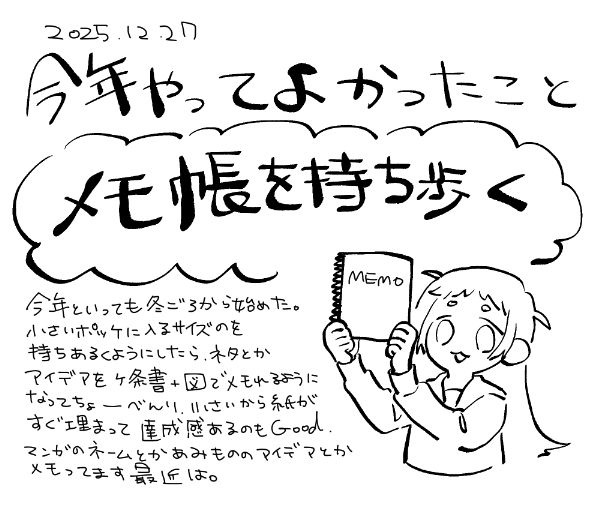 2025.12.27
今年やってよかったこと
メモ帳を持ち歩く
MEMO
今年といっても冬ごろから始めた。
小さいポッケに入るサイズのを
持ちあるくようにしたら、ネタとか
アイデアを ケ条書+図でメモれるように
なってちょーべんり、小さいから紙が
すぐ埋まって 達成感あるのもGood.
マンガのネームとかあみもののアイデアとか
メモってます最近は。